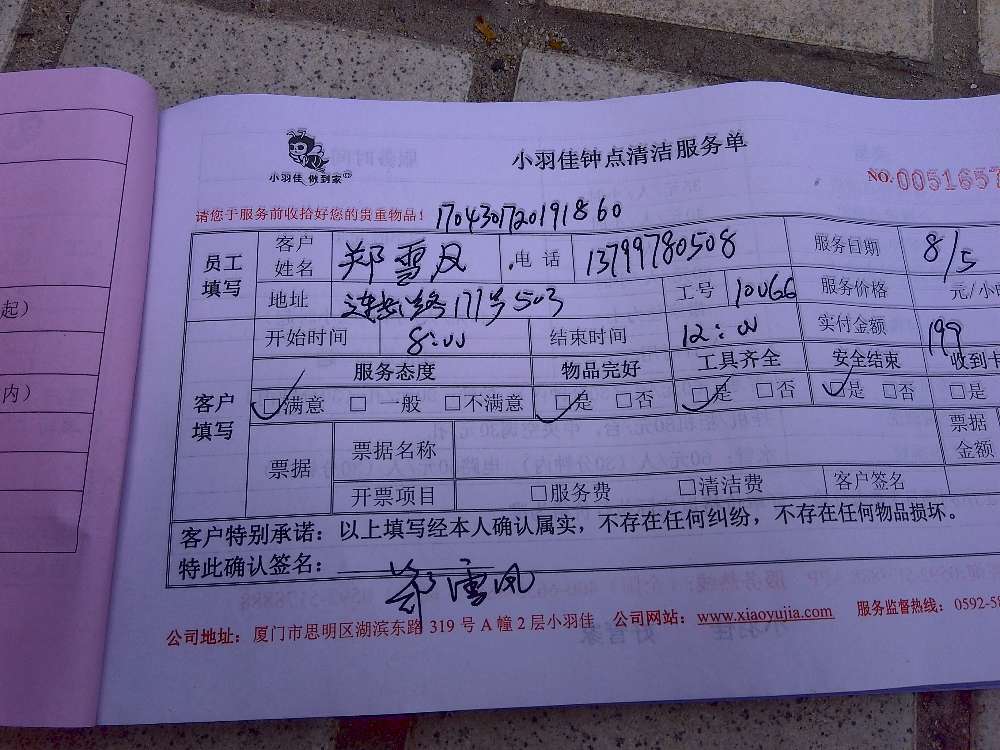 小羽佳 做到家
小羽佳钟点清洁服务单
NO. 0051657
请您于服务前收拾好您的贵重物品！ 1704301720191860
员工填写 客户姓名 郑雪凤 电话 13799780508 服务日期 8/5
地址 莲岳路171号503 工号 10066 服务价格 元/小
开始时间 8:00 结束时间 12:00 实付金额 199
客户填写 服务态度 物品完好 工具齐全 安全结束 收到卡
□满意 □ 一般 □不满意 □是 □否 □是 □否 □是 □否 □是
票据 票据名称 票据金额
开票项目 □服务费 □清洁费 客户签名
客户特别承诺：以上填写经本人确认属实，不存在任何纠纷，不存在任何物品损坏。
特此确认签名： 郑雪凤
公司地址：厦门市思明区湖滨东路 319 号 A 幢 2 层小羽佳 公司网站：www.xiaoyujia.com 服务监督热线：0592-58
起）
内）